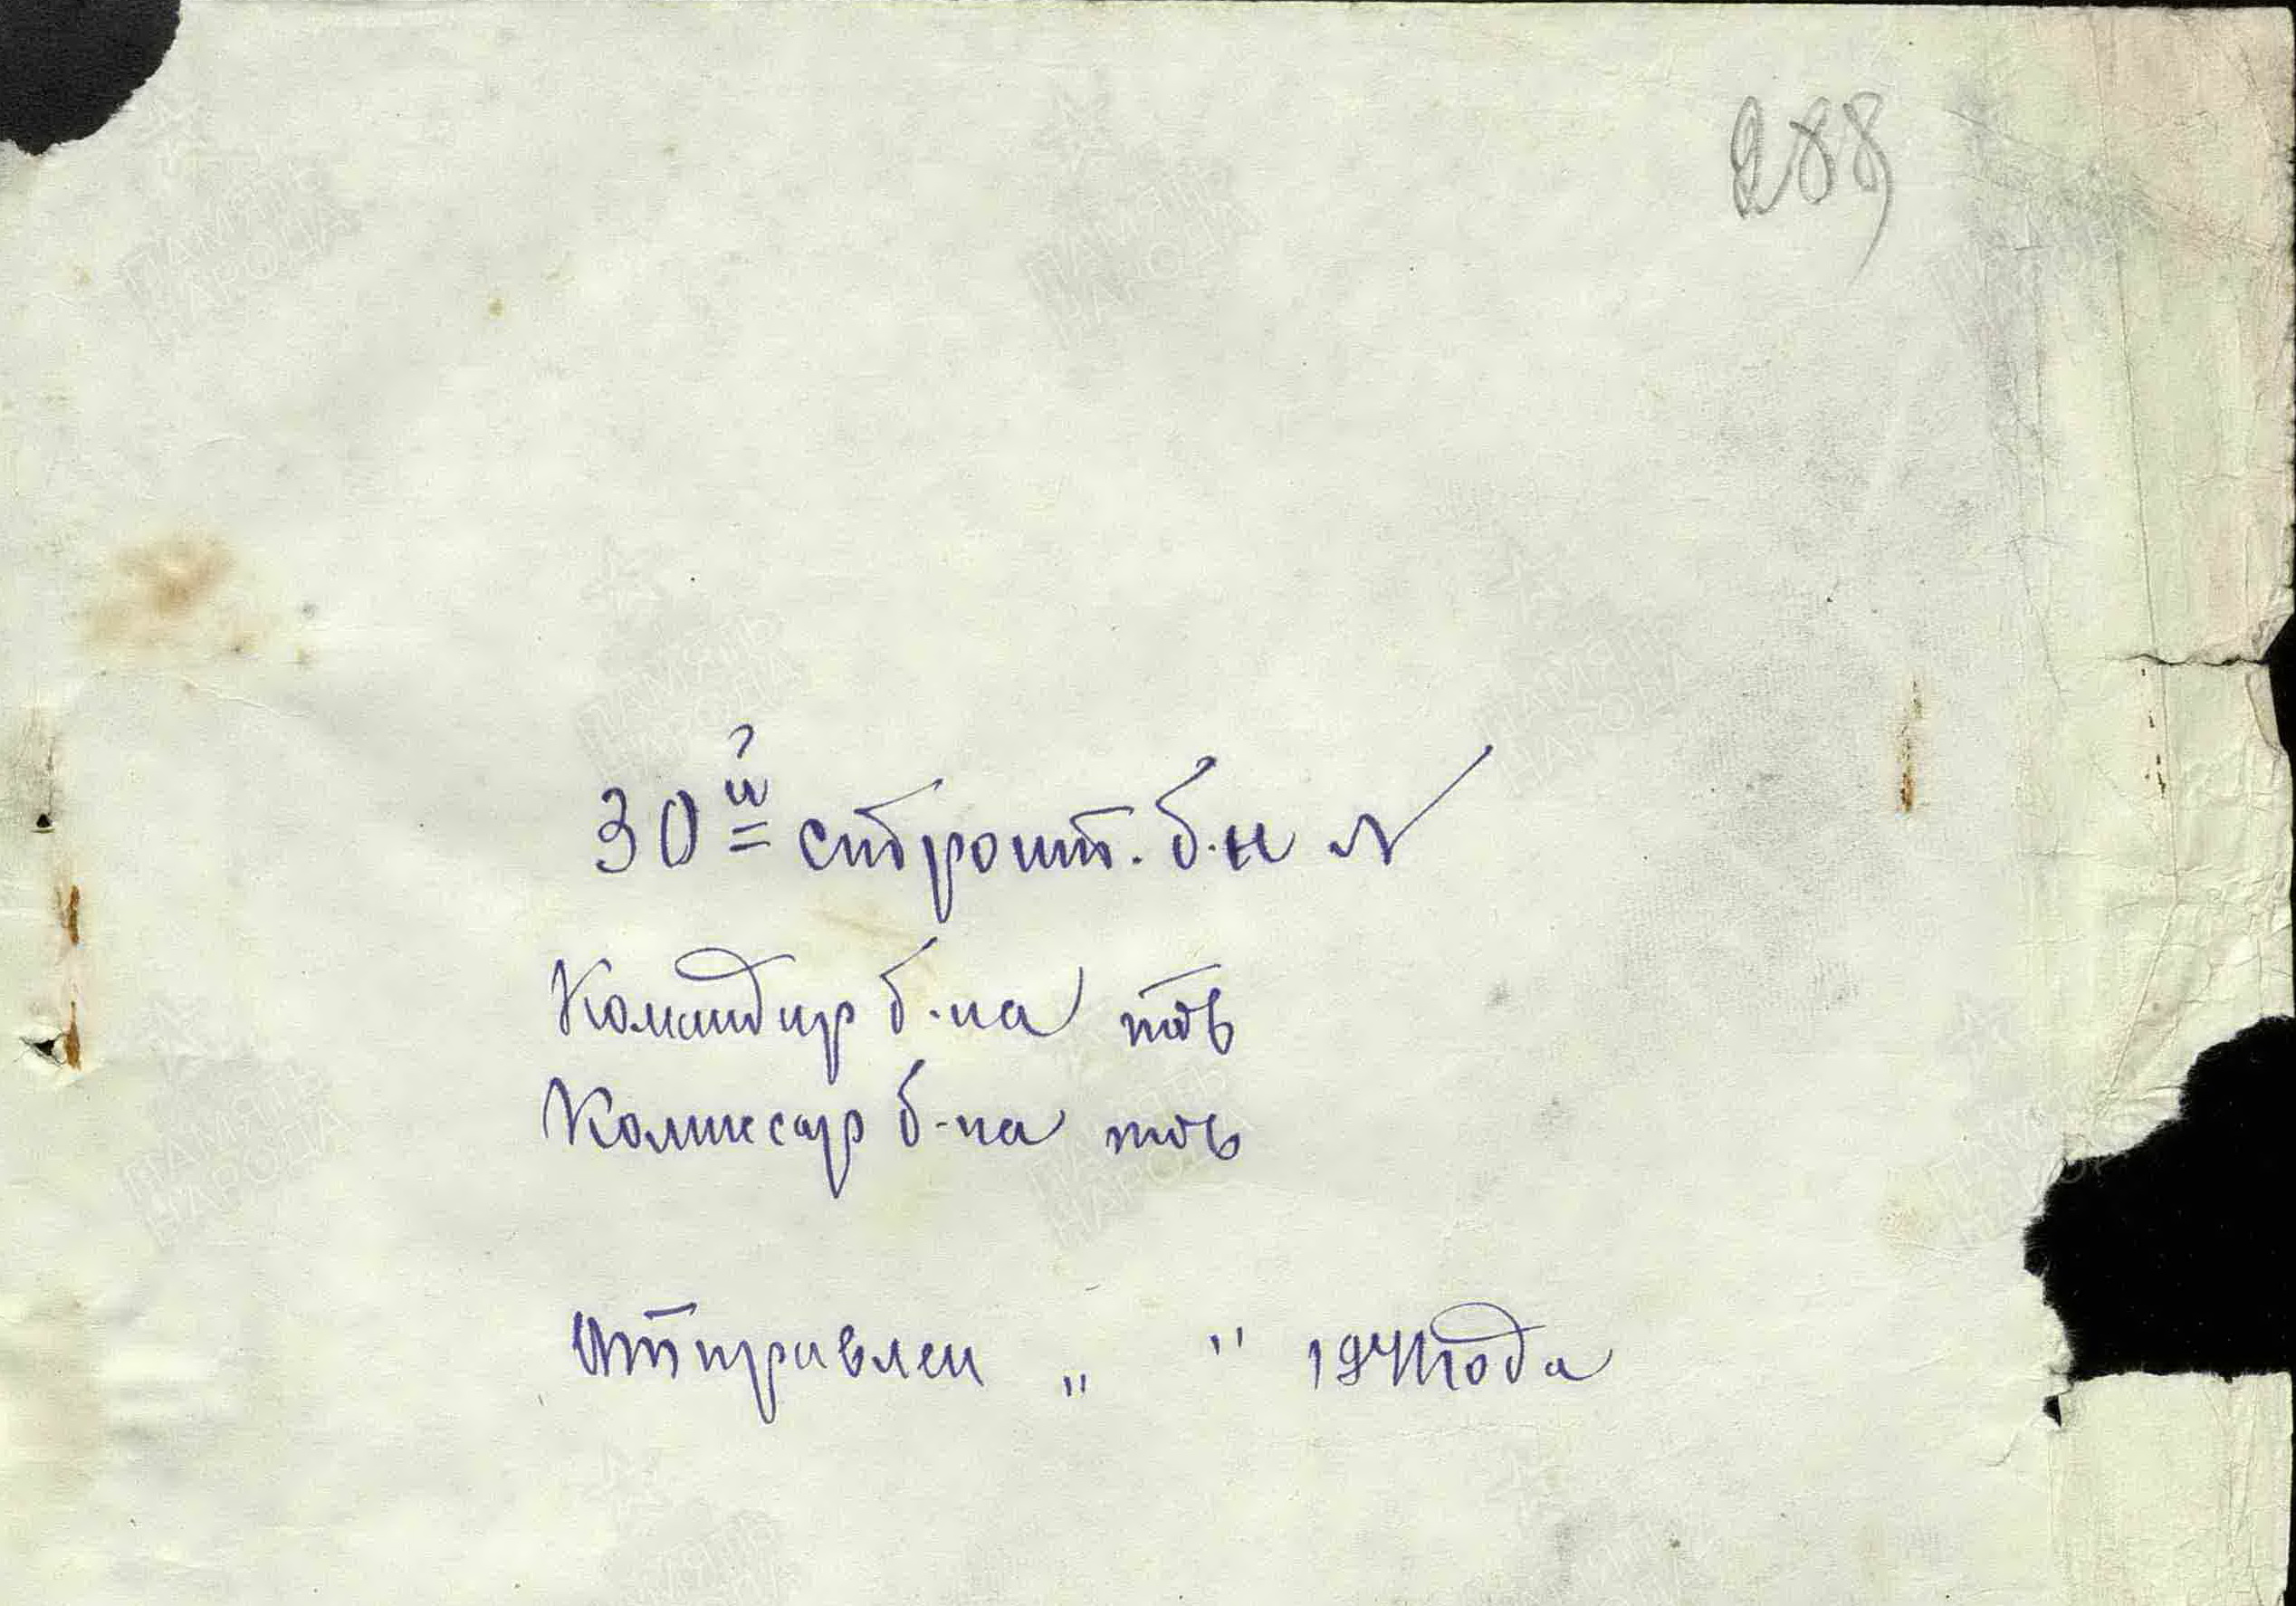 288
30й строит. б-н №
Командир б-на тов
Комиссар б-на тов
Отправлен „ " 1941 года
ПАМЯТЬ НАРОДА